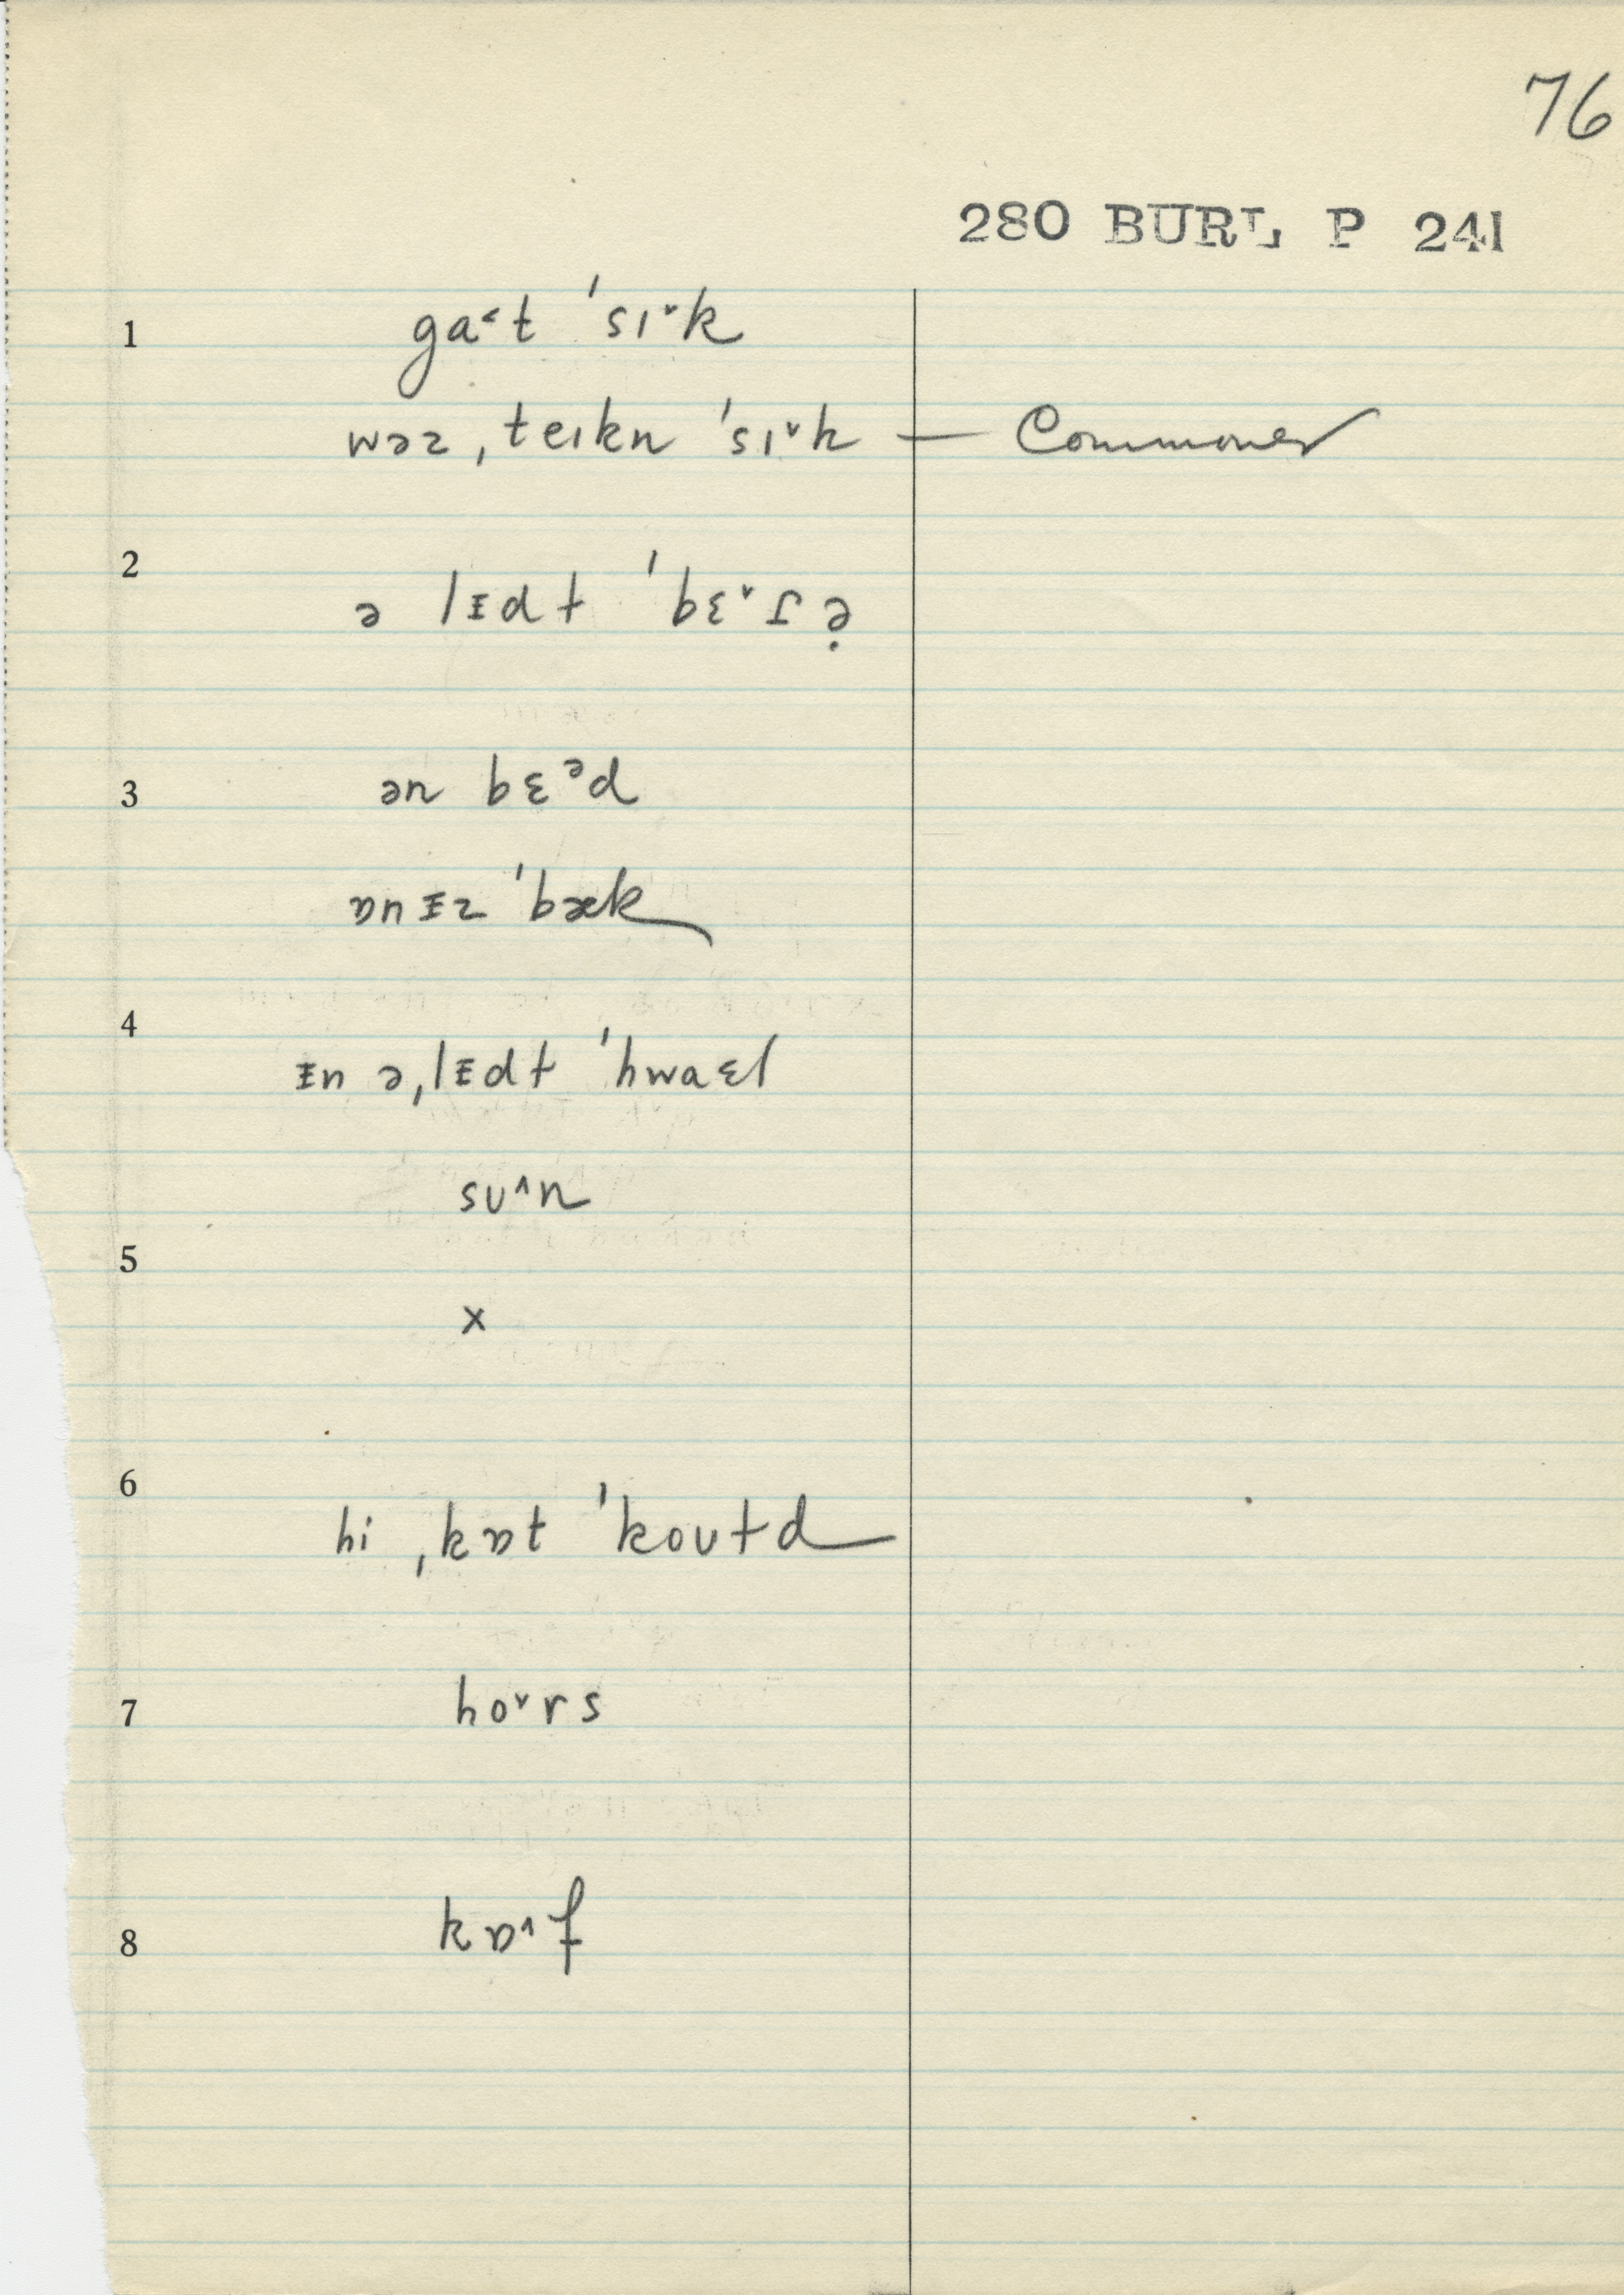 76
280 BURL P 241
1 ga˂t ˈsɪ˅k
wəz ˌteɪkn ˈsɪ˅k — Commoner
2 ə lᵻdt ˈbɛ˅ɾə̣
3 ən bɛᵊd
ɒnᵻz ˈbæk
4 ᵻn əˌlᵻdt ˈhwaɛl
sʊ˄n
5 x
6 hi ˌkɒt ˈkoʊtd
7 ho˅rs
8 kɒ˄f